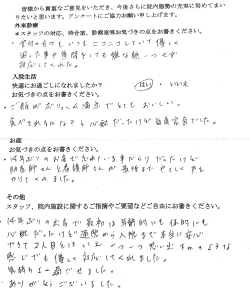 皆様から貴重なご意見をいただき、今後さらに院内態勢の充実に努めてまい
りたいと思います。アンケートにご協力お願い申し上げます。
外来診療
＊スタッフの対応、待合室、診察室等お気づきの点をお書きください。
・受付の方々もいつもニコニコしていて優しく
困った事や質問などしても嫌な顔一つせず
対応してくれた。
入院生活
快適にお過ごしになれましたか？ はい ・ いいえ
お気づきの点をお書きください。
・ご飯がボリューム満点でとてもおいしい。
食べきれるかな？と心配だったけど毎食完食でした。
お産
お気づきの点をお書きください。
・14年ぶりのお産で忘れている事だらけだったけど
助産師さんと看護師さんが最後までやさしく
してくれました。
その他
スタッフ、院内施設に関するご指摘やご要望などご自由にお書きください。
・14年ぶりの出産で最初は年齢的にも体的にも
心配だったけど通院から入院まで本当に安心
2人目とはいえ 一つ一つ思い出すかのような
感じでも優しく対応してくれました。
気持ちよく過ごせました。
ありがとうございました。